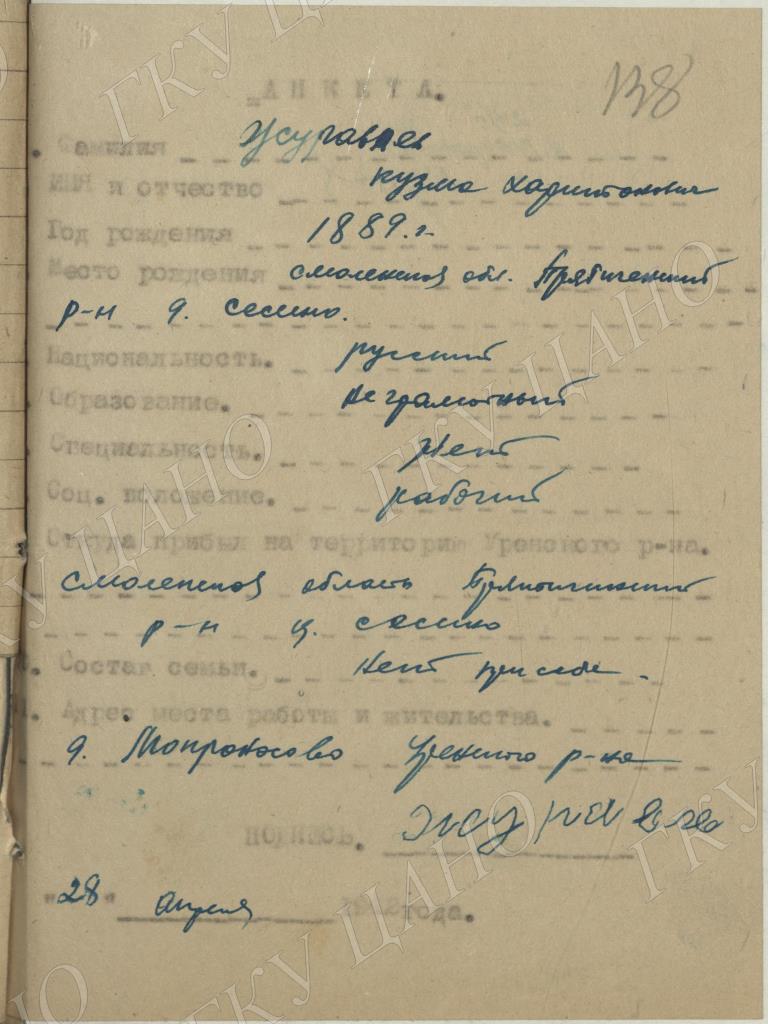 138
„АНКЕТА.
. Фамилия Журавлев
Имя и отчество кузма харитонович
Год рождения 1889.г
Место рождения смоленская обл.
р-н д. сесино.
Национальность. русский
Образование. неграмотный
Специальность. Нет
Соц. положение. рабочий
Откуда прибыл на территорию Уренского р-на.
смоленской область
р-н сесино
. Состав семьи. Нет при себе.
. Адрес места работы и жительства.
д. Уренского р-на
подпись. Журавлев
"28" апреля 1942 года.
ГКУ ЦАНО